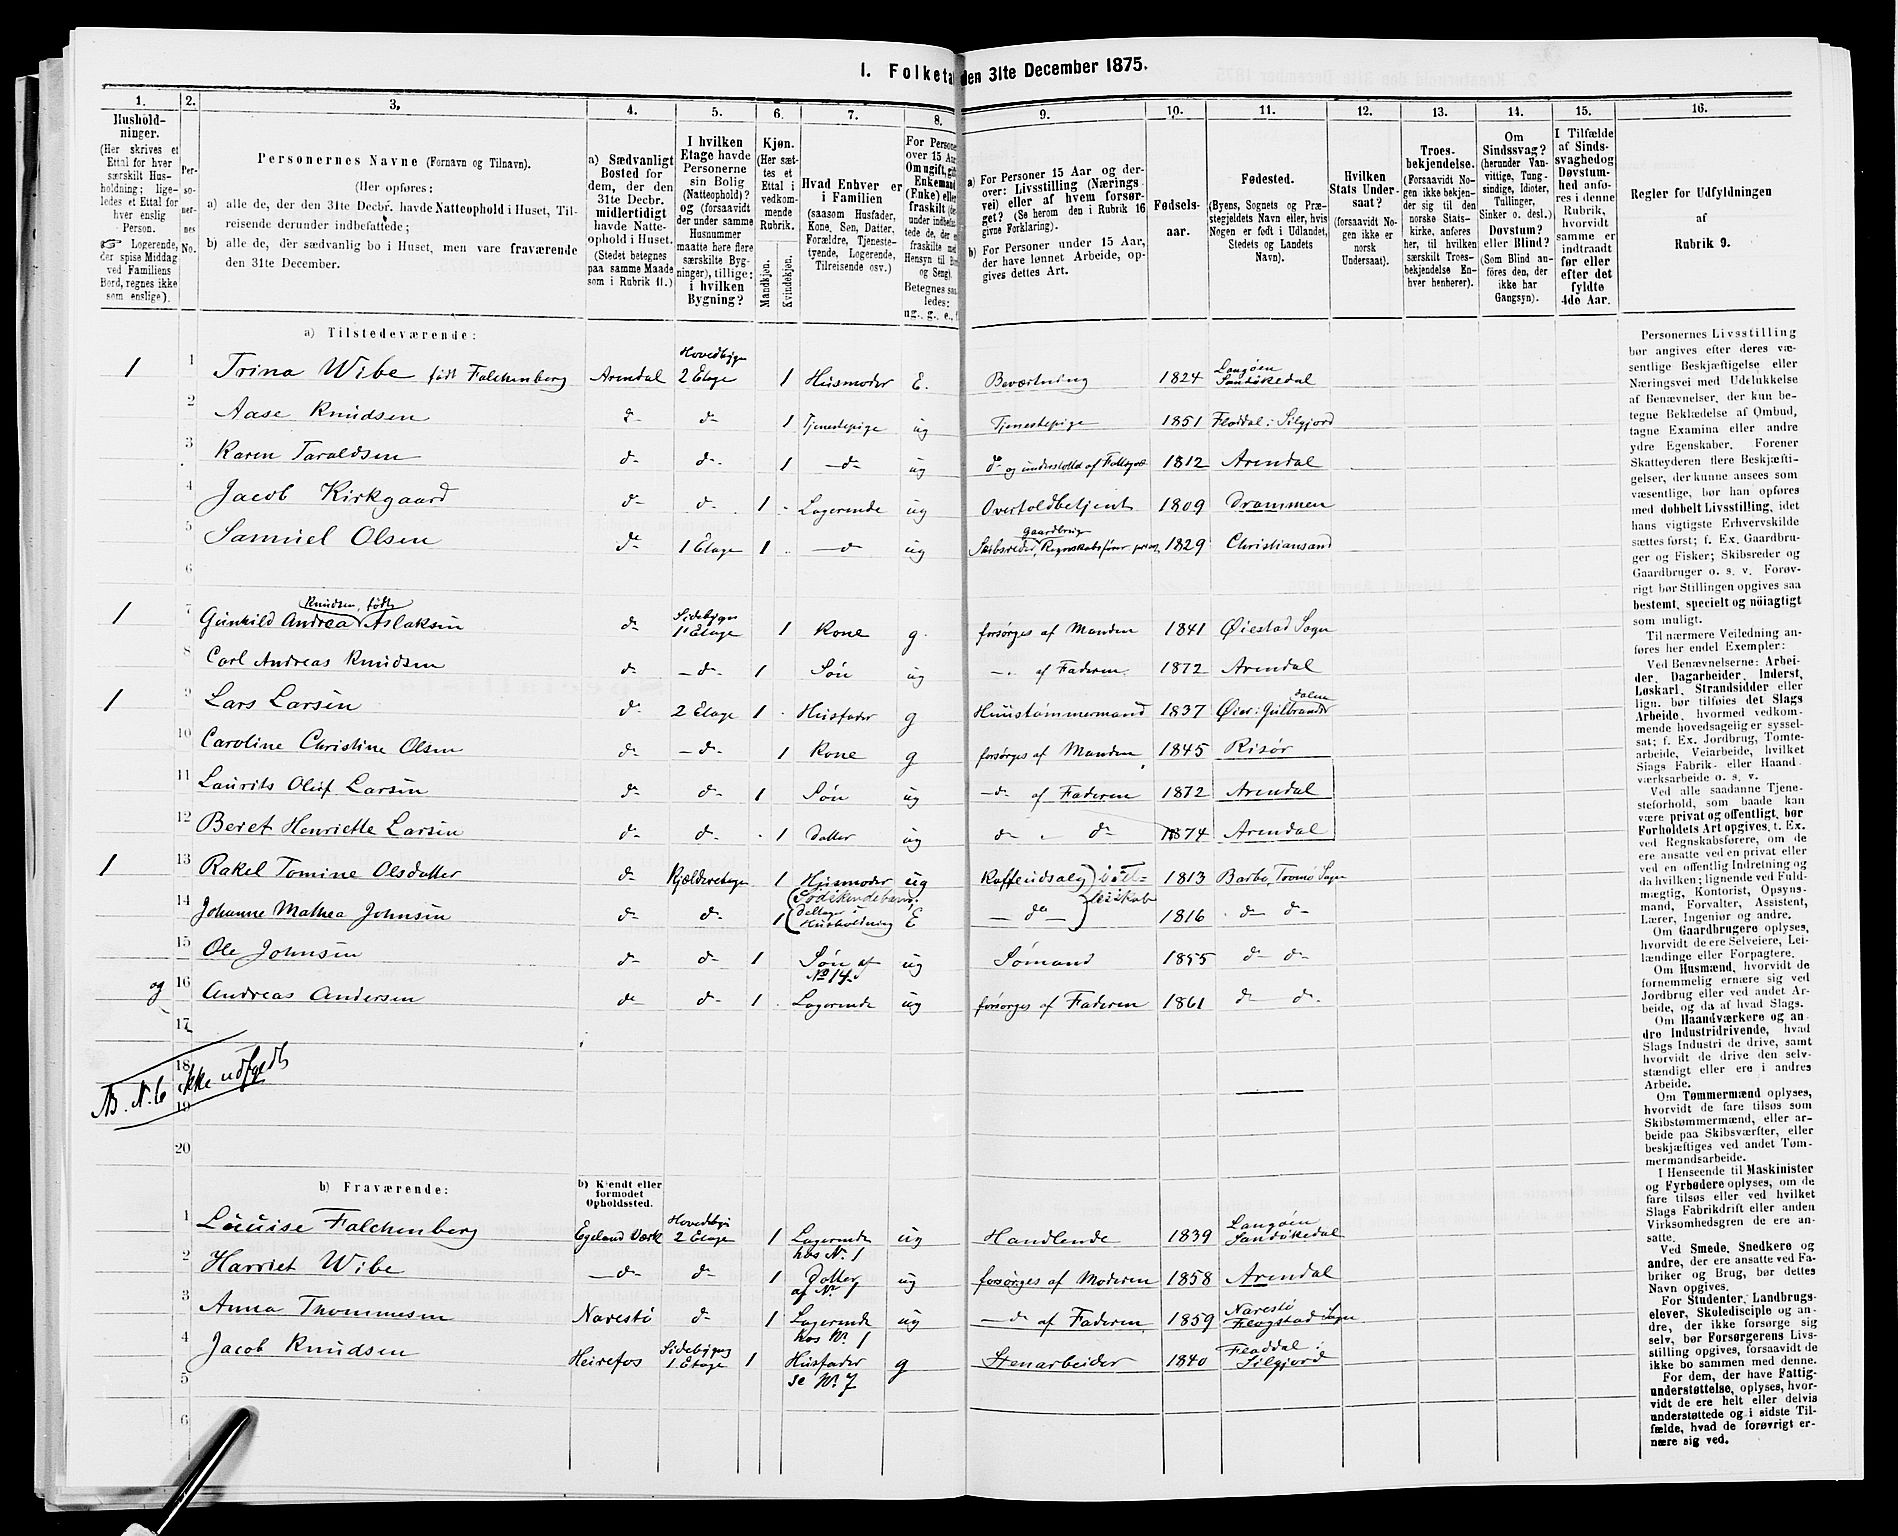 I. Folketal den 31te December 1875.
1. 2. 3. 4. 5. 6. 7. 8. 9. 10. 11. 12. 13. 14. 15. 16.
Husholdninger.
(Her skrives et
Ettal for hver
særskilt Husholdning;
ligeledes et Ettal for
hver enslig
Person.
☞ Logerende,
der spise Middag
ved Familiens
Bord, regnes ikke
som enslige).
Personernes No.
Personernes Navne (Fornavn og Tilnavn).
(Her opføres:
a) alle de, der den 31te Decbr. havde Natteophold i Huset, Tilreisende
derunder indbefattede;
b) alle de, der sædvanlig bo i Huset, men vare fraværende
den 31te December.
a) Sædvanligt
Bosted for
dem, der den
31te Decbr.
midlertidigt
havde Natteophold
i Huset.
(Stedet betegnes
paa samme Maade
som i Rubrik 11.)
I hvilken
Etage havde
Personerne
sin Bolig
(Natteophold)?
og (forsaavidt
der under samme
Husnummer
maatte være flere
særskilte Bygninger),
tillige:
i hvilken
Bygning?
Kjøn.
(Her sættes
et
Ettal i
vedkommende
Rubrik.
Mandkjøn.
Kvindekjøn.
Hvad Enhver er
i Familien
(saasom Husfader,
Kone, Søn, Datter,
Forældre, Tjenestetyende,
Logerende,
Tilreisende osv.)
For Personer
over 15 Aar
Om ugift, gift
Enkemand
(Enke) eller
fraskilt
Betegnes saaledes:
ug., g., e., f.
a) For Personer 15 Aar og derover:
Livsstilling (Næringsvei)
eller af hvem forsørget?
(Se herom den i Rubrik 16
givne Forklaring).
b) For Personer under 15 Aar,
der have lønnet Arbeide, opgives
dettes Art.
Fødselsaar.
Fødested.
(Byens, Sognets og Præstegjeldets
Navn eller, hvis
Nogen er født i Udlandet,
Stedets og Landets
Navn).
Hvilken
Stats Undersaat?
(forsaavidt Nogen
ikke er
norsk
Undersaat).
Troesbekjendelse.
(Forsaavidt Nogen
ikke bekjender
sig til den
norske Statskirke,
anføres
her, til hvilken
særskilt Troesbekjendelse
Enhver
henhører).
Om
Sindssvag?
(herunder Vanvittige,
Tungsindige,
Idioter,
Tullinger,
Sinker o. desl.)
Døvstum?
eller Blind?
(Som Blind anføres
den, der
ikke har
Gangsyn).
I Tilfælde
af Sindssvaghed
og
Døvstumhed
anføres
i denne
Rubrik,
hvorvidt
samme er
indtraadt
før eller
efter det
fyldte
4de Aar.
Regler for Udfyldningen
af
Rubrik 9.
a) Tilstedeværende:
1 1 Trina Wibe født Falchenberg Arendal Hovedbygn 2 Etage 1 Husmoder E. Beværtning 1824 Langøen Sandøkedal
2 Aase Knudsen d- d- 1 Tjenestepige ug Tjenestepige 1851 Fladdal i Silgjord
3 Karen Taraldsen d- d- 1 -d- ug d- og understøttet af Fattigvæs 1812 Arendal
4 Jacob Kirkgaard d- d- 1 Logerende ug Overtoldbetjent 1809 Drammen
5 Samuel Olsen d- 1 Etage 1 -d ug Skibsreder, Gaardbrug Regnskabsfører 1829 Christiansand
6
1 7 Gunhild Andrea Knudsen, født Aslaksen d- Sidebygn 1 Etage 1 Kone g. forsørges af Manden 1841 Øiestad Sogn
8 Carl Andreas Knudsen d- -d- 1 Søn ug -. af Faderen 1872 Arendal
1 9 Lars Larsen d- 2 Etage 1 Husfader g Huustømmermand 1837 Øier i Gulbrandsdalen
10 Caroline Christine Olsen d- -d- 1 Kone g forsørges af Manden 1845 Risør
11 Laurits Oluf Larsen d- d- 1 Søn ug -d- af Faderen 1872 Arendal
12 Beret Henriette Larsen d- d- 1 Datter ug d- „ d- 1874 Arendal
1 13 Rakel Tomine Olsdatter d- Kjælderetage 1 Husmoder ug Kaffeudsalg 1813 Barbo, Tromø Sogn
14 Johanne Mathea Johnsen d- d- 1 (Sødskendebarn, deltager i Husholdning E -do- 1816 d- d-
15 Ole Johnsen d- d- 1 Søn af No 14. ug Sømand 1855 d- d-
og 16 Andreas Andersen d- d- 1 Logerende ug forsørges af Faderen 1861 d- d-
17
18
NB. N. 6 ikke udfyldt
19
20
b) Fraværende:
b) Kjendt eller
formodet
Opholdssted.
1 Louise Falchenberg Egeland Værk Hovedbyg 2 Etage 1 Logerende hos N. 1 ug Handlende 1839 Langøen Sandøkedal
2 Harriet Wibe -d- d- 1 Datter af N. 1 ug forsørges af Moderen 1858 Arendal
3 Anna Thommesen Narestø d- 1 Logerende hos N. 1 ug -d- af Faderen 1859 Narestø Flagstad Sogn
4 Jacob Knudsen Heirefos Sidebygn 1 Etage 1 Husfader se N. 7 g Stenarbeider 1840 Fladdal i Silgjord
5
6
Personernes Livsstilling
bør angives efter deres væsentlige
Beskjæftigelse eller
Næringsvei med Udelukkelse
af Benævnelser, der kun betegne
Beklædelse af Ombud,
tagne Examina eller andre
ydre Egenskaber. Forener
Skatteyderen flere Beskjæftigelser,
der kunne ansees som
væsentlige, bør han opføres
med dobbelt Livsstilling, idet
hans vigtigste Erhvervskilde
sættes først; f. Ex. Gaardbruger
og Fisker; Skibsreder og
Gaardbruger o. s. v. Forøvrigt
bør Stillingen opgives saa
bestemt, specielt og nöiagtigt
som muligt.
Til nærmere Veiledning anføres
her endel Exempler:
Ved Benævnelserne: Arbeider,
Dagarbeider, Inderst,
Løskarl, Strandsidder eller
lign. bør tilføies det Slags
Arbeide, hvormed vedkommende
hovedsagelig er sysselsat;
f. Ex. Jordbrug, Tomtearbeide,
Veiarbeide, hvilket
Slags Fabrik- eller Haandværksarbeide
o. s. v.
Ved alle saadanne Tjenesteforhold,
som baade kan
være privat og offentligt, bør
Forholdets Art opgives, t. Ex.
ved Regnskabsførere, om de
ere ansatte ved en privat eller
ved en offentlig Indretning og
da hvilken; lignende ved Fuldmægtig,
Kontorist, Opsynsmand,
Forvalter, Assistent,
Lærer, Ingeniør og andre.
Om Gaardbrugere oplyses,
hvorvidt de ere Selveiere, Leilændinge
eller Forpagtere.
Om Husmænd, hvorvidt de
fornemmelig ernære sig ved
Jordbrug eller ved andet Arbeide,
og da af hvad Slags.
Om Haandværkere og andre
Industridrivende, hvad
Slags Industri de drive, samt
hvorvidt de drive den selvstændigt
eller ere i andres
Arbeide.
Om Tømmermænd oplyses,
hvorvidt de fare tilsøs som
Skibstømmermænd, eller arbeide
paa Skibsværfter, eller
beskjæftiges ved andet Tømmermandsarbeide.
I Henseende til Maskinister
og Fyrbødere oplyses, om de
fare tilsøs eller ved hvilket
Slags Fabrikdrift eller anden
Virksomhedsgren de ere ansatte.
Ved Smede, Snedkere og
andre, der ere ansatte ved Fabriker
og Brug, bør dettes
Navn opgives.
For Studenter, Landbrugselever,
Skoledisciple og andre,
der ikke forsørge sig
selv, bør Forsørgerens Livsstilling
opgives, forsaavidt de
ikke bo sammen med denne.
For dem, der have Fattigunderstøttelse,
oplyses, hvorvidt
de ere helt eller delvis
understøttede og i sidste Tilfælde,
hvad de forøvrigt ernære
sig ved.